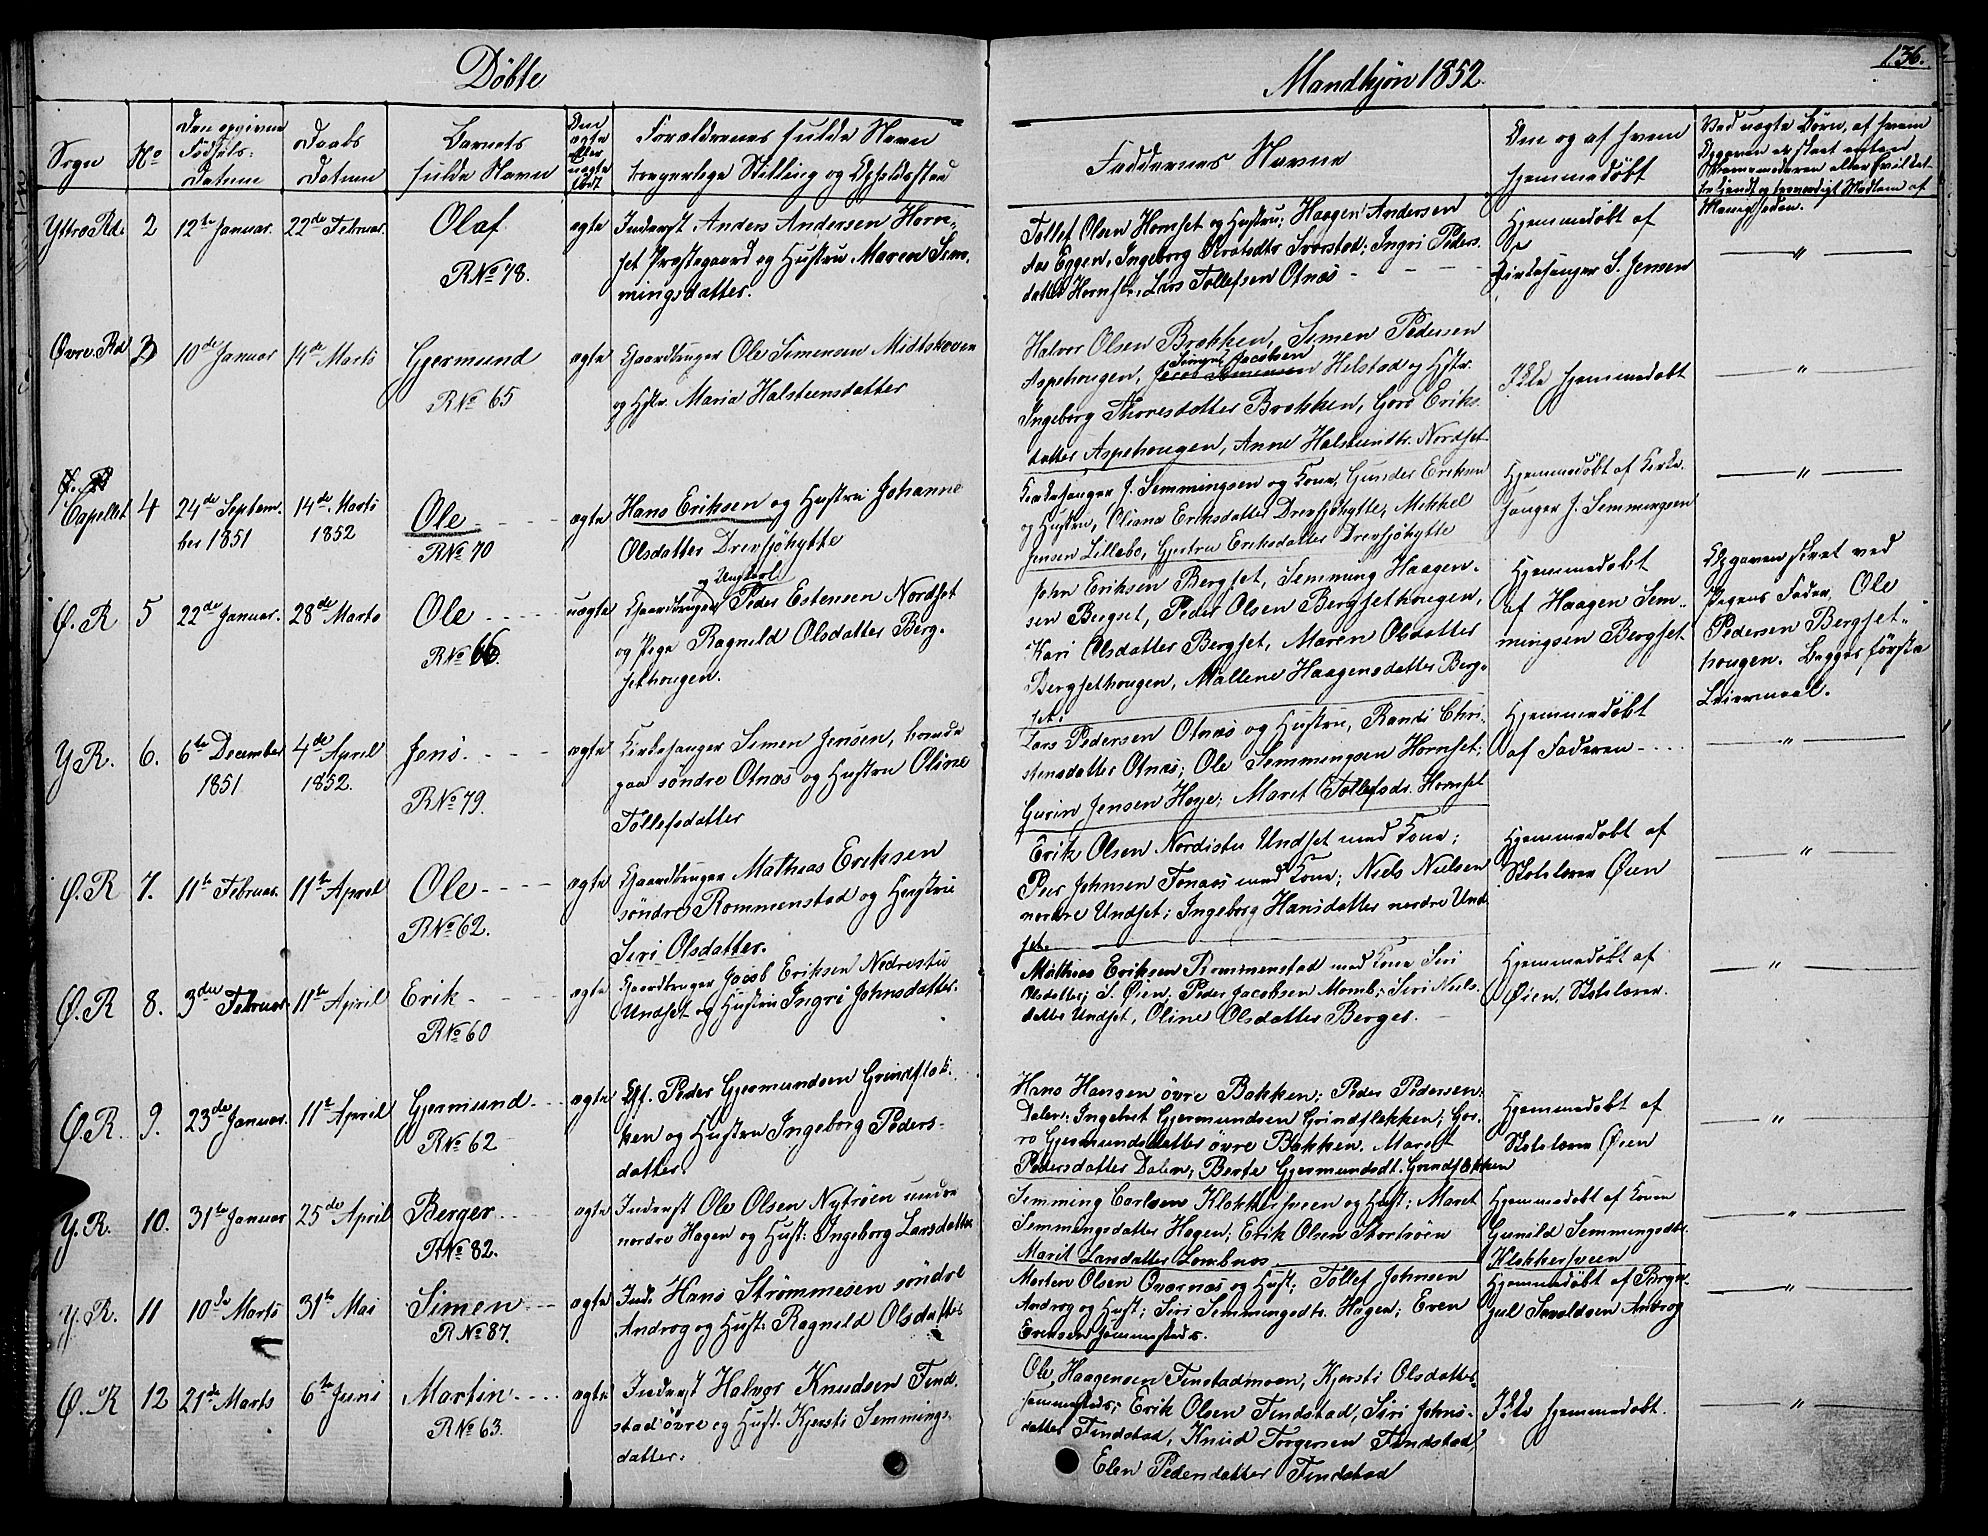 Döbte
Mandkjøn 1852.
136.
Sogn
No
Den opgivne Födsels-Datum
Daabs Datum
Barnets fulde Navn
Om ægte eller uægte født
Forældrenes fulde Navn borgerlige Stilling og Opholdssted
Faddernes Navne
Om og af hvem hjemmedøbt
Ved uægte Börn, af hvem Opgaven er skeet enten
Yttre Rd. 2 12te Januar. 22de Februar. Olaf. ægte Inderst Anders Andersen Horn-
R No 78. set Præstegaard og Hustru Maren Sem-
mingsdatter.
Tollef Olsen Hornset og Hustru; Haagen Andersen
Aas Eggen, Ingeborg Svorstad; Ingri Peders-
datter Hornset, Lars Tollefsen Otnæs
Hjemmedöbt af
Kirkesanger S. Jensen
"
Øvre Rd 3 10de Januar 14de Marts Gjermund ægte Gaardbruger Ole Simensen Midtskoven
R No 65 og Hstr. Maria Halsteensdatter
Halvor Olsen Brækken, Simen Pedersen
Aspehougen, Simen Jacobsen Helstad og Hstr.
Ingeborg Thoresdatter Brækken, Goro Eriks-
datter Aspehougen, Anne Halsteindtr. Nordset
Ikke hjemmedøbt
"
Capellet 4 24de Septem- 14de Marts Ole ægte Hans Eriksen og Hustru Johanne
ber 1851 1852 R No 70 Olsdatter Drevsjöhytte
Kirkesanger J. Semmingsen og Kone, Gunder Eriksen
og Hustru, Oliana Eriksdatter Drevsjöhytte, Mikkel
Jensen Lillebo, Gjertru Eriksdatter Drevsjöhytte
Hjemmedöbt af Kirke-
sanger J. Semmingsen
"
Ø. R 5 22de Januar. 28de Marts Ole uægte Gaardbruger og Ungkarl Peder Estensen Nordset
R No 66. og Pige Ragnild Olsdatter Berg-
sethougen.
John Eriksen Bergset, Semming Haagen-
sen Bergset, Peder Olsen Bergsethougen,
Kari Olsdatter Bergset, Maren Olsdatter
Bergsethougen, Mallene Haagensdatter Berg-
set.
Hjemmedöbt
af Haagen Sem-
mingsen Bergset
Opgaven skeet ved
Pigens Fader, Ole
Pedersen Bergset-
hougen. Begges första
Leiermaal.
Y R. 6. 6te December 4de April Jens. ægte Kirkesanger Simen Jensen, boende
1851 1852. R No 79. paa söndre Otnæs og Hustru Oline
Tollefsdatter
Lars Pedersen Otnæs og Hustru, Randi Chri-
stensdatter Otnæs; Ole Semmingsen Hornset;
Gurin Jensen Høye; Maret Tollefsdr. Hornset
Hjemmedöbt
af Faderen
"
Ø. R 7. 11te Februar. 11te April Ole ægte Gaardbruger Mathias Eriksen
R No 62. söndre Rommenstad og Hustru
Siri Olsdatter.
Erik Olsen Nordistu Undset med Kone;
Peer Johnsen Tonaas med Kone; Niels Nielsen
nordre Undset; Ingeborg Hansdatter nordre Und-
set.
Hjemmedöbt af
Skolelærer Øien
"
Ø. R 8. 3die Februar 11te April Erik ægte Gaardbruger Jacob Eriksen Nedrestu
R No 60 Undset og Hustru Ingri Johnsdatter.
Mathias Eriksen Rommenstad med Kone Siri
Olsdatter; S. Øien; Peder Jacobsen Momb; Siri Niels-
datter Undset, Oline Olsdatter Berger.
Hjemmedöbt af
Øien, Skolelærer.
"
Ø. R. 9. 23de Januar. 11te April Gjermund ægte Gf. Peder Gjermundsen Grindflek-
R No 62 ken og Hustru Ingeborg Peders-
datter.
Hans Hansen övre Bakken; Peder Pedersen
Dalen; Ingebret Gjermundsen Grindflekken; Go-
ro Gjermundsdatter övre Bakken. Maret
Pedersdatter Dalen; Berte Gjermundsdt. Grindflekken
Hjemmedöbt af
Skolelærer Øien
"
Y. R. 10. 31te Januar 25de April Berger ægte Inderst Ole Olsen Nytröen under
R No 82. nordre Hagen og Hust: Ingeborg Larsdatter
Semming Carlsen Klokkersveen og Hust: Maret
Semmingsdatter Hagen; Erik Olsen Stortröen
Marit Larsdatter Lombnæs
Hjemmedöbt af Konen
Gunild Semmingsdtr.
Klokkersveen
"
Y. R. 11 10de Marts 31te Mai Simen ægte Ind. Hans Strømmesen söndre
R No 87. Androg og Hust: Ragnild Olsdatter
Morten Olsen Ovornæs og Hust; Tollef Johnsen
Andrög og Hust; Siri Semmingsdtr. Hagen; Even
Eriksen
Hjemmedöbt af
Andrög
"
Ø. R 12 21de Marts 6te Juni Martin ægte Inderst Halvor Knudsen Find-
R No 63. stad övre og Hust: Kjersti Semmings-
datter.
Ole Haagensen Finstadmoen, Kjersti Olsdatter
Erik Olsen Findstad, Siri Johns-
datter Findstad, Knud Torgersen Findstad
Elen Pedersdatter Findstad
Ikke hjemmedöbt.
"